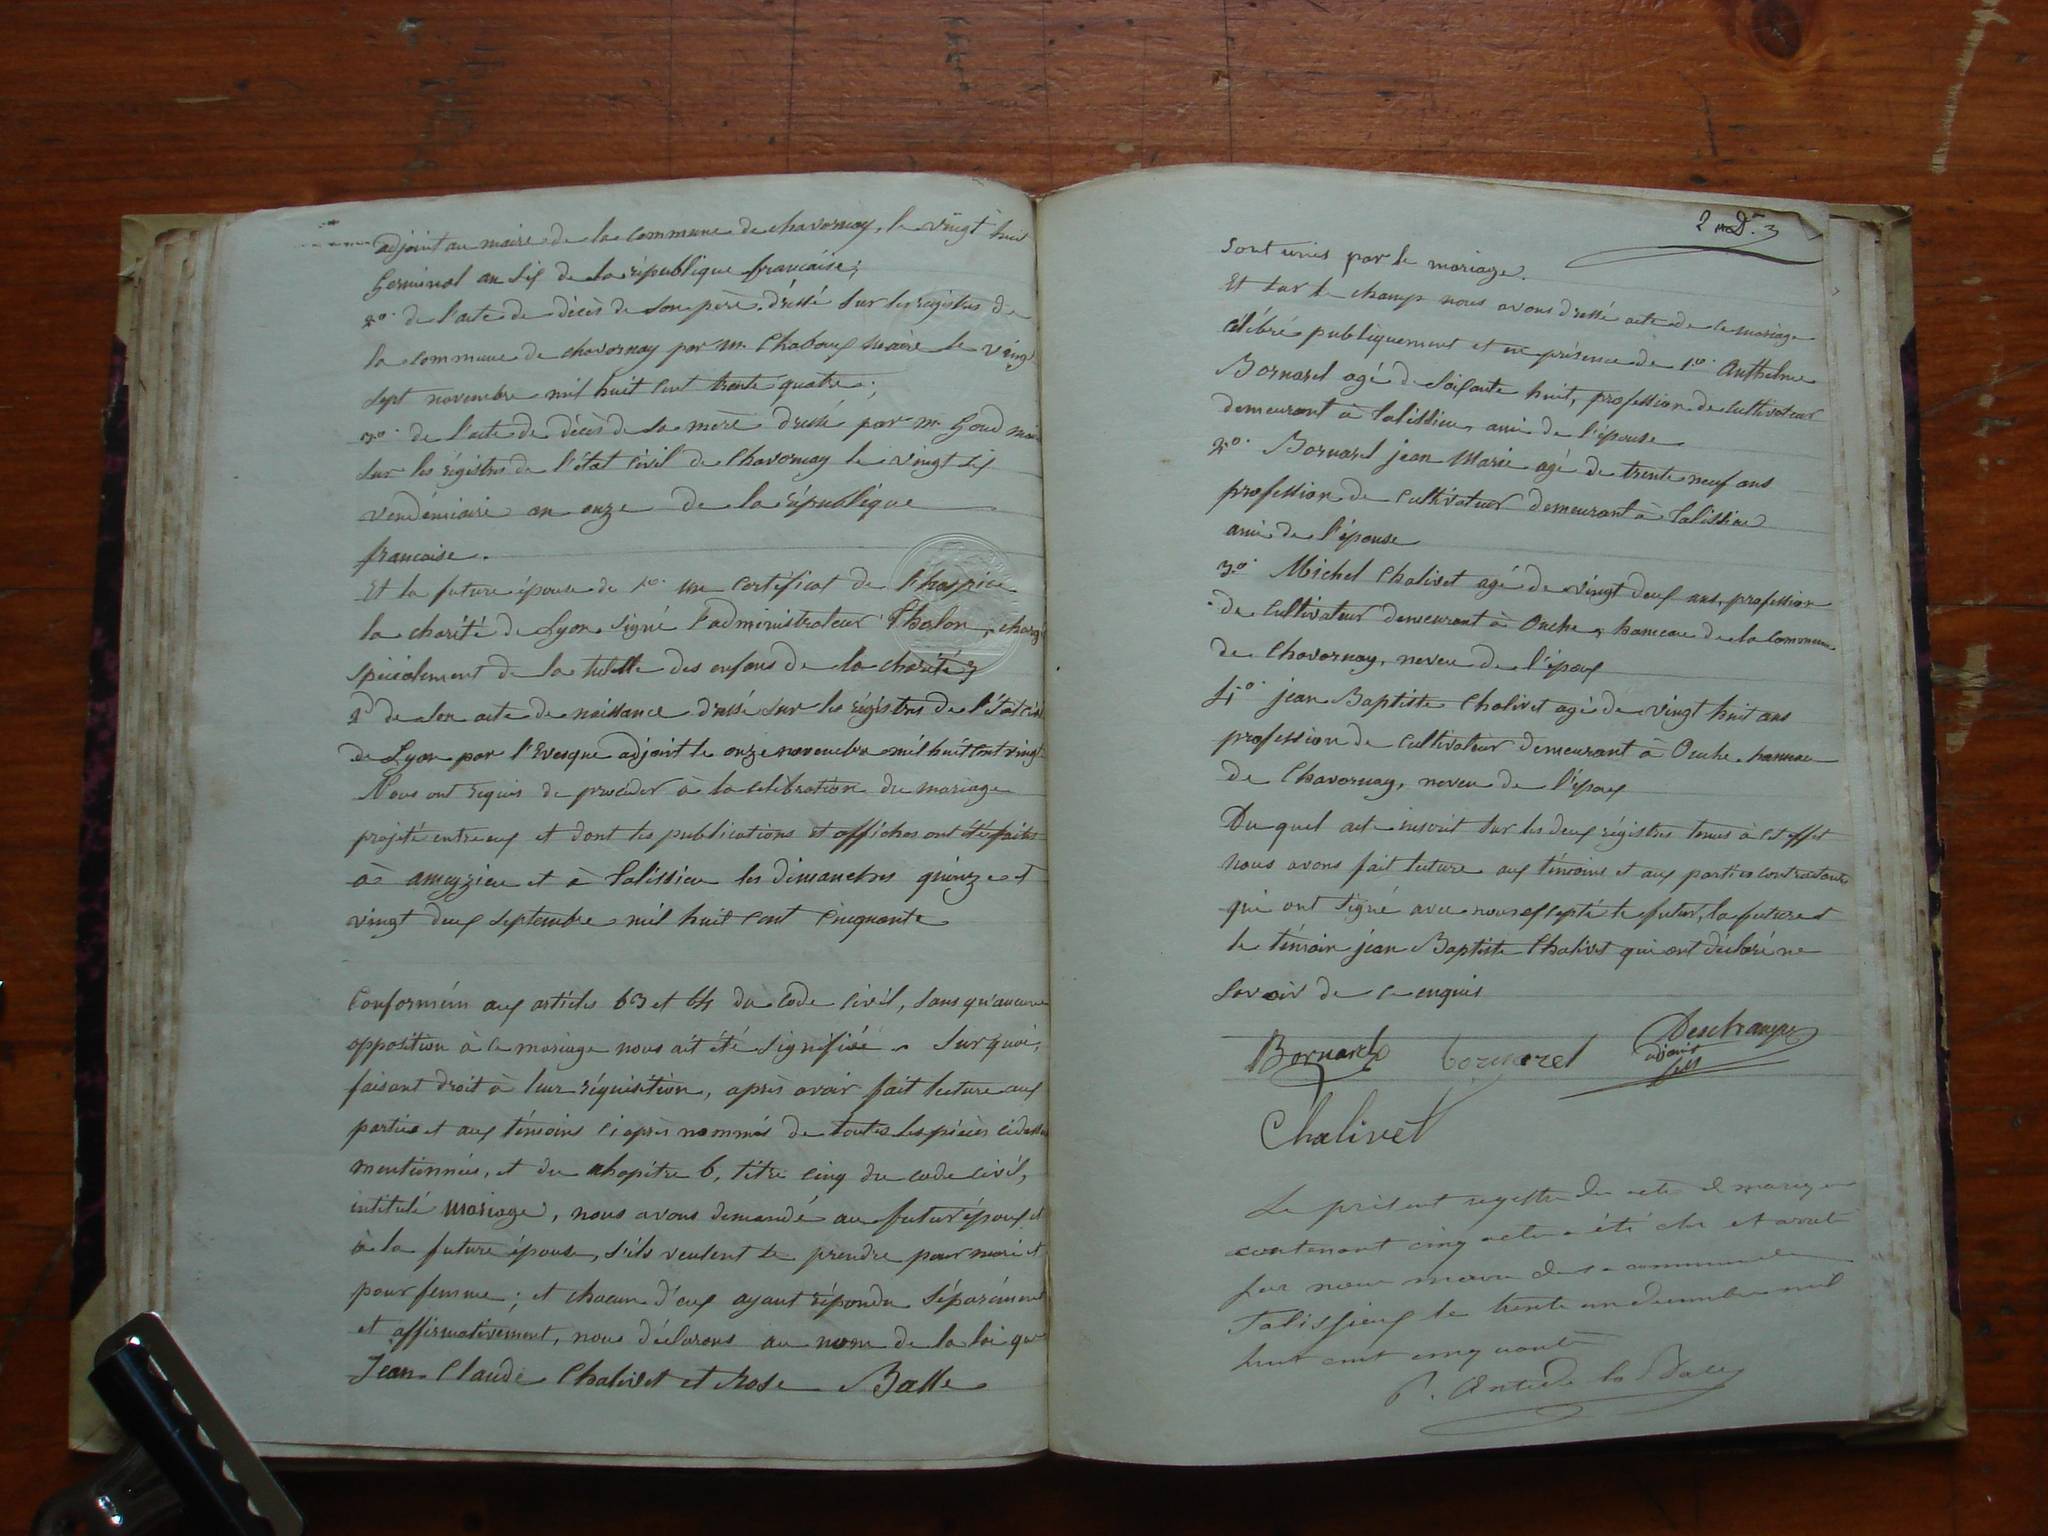 adjoint au maire de la commune de chavornay, le vingt huit
Germinal an six de la république francaise;
2º. de l'acte de décès de son père dressé sur les registres de
la commune de chavornay par mr. Chaboux maire le vingt
sept novembre mil huit cent trente quatre;
3º. de l'acte de décès de sa mère dressé par mr. Goud mai
sur les régistres de l'état civil de Chavornay le vingt six
vendémiaire an onze de la république
francaise.
Et la future épouse de 1º. un certificat de l'hospice
la charité de Lyon signé l'administrateur Thalon, chargé
spécialement de la tutelle des enfans de la charité;
2º de son acte de naissance dressé sur les régistres de l'état civil
de Lyon par l'Evesque adjoint le onze novembre mil huit cent vingt
Nous ont requis de procéder à la célébration du mariage
projeté entre eux et dont les publications et affiches ont été faites
à ameyzieu et à talissieu les dimanches quinze et
vingt deux septembre mil huit cent cinquante
Conformém aux articles 63 et 64 du code civil, sans qu'aucune
opposition à ce mariage nous ait été signifiée. Sur quoi,
faisant droit à leur réquisition, après avoir fait lecture aux
parties et aux témoins ci après nommés de toutes les pièces ci dessus
mentionnées, et du chapitre 6, titre cinq du code civil,
intitulé mariage, nous avons demandé au futur époux et
à la future épouse, s'ils veulent se prendre pour mari et
pour femme; et chacun d'eux ayant répondu séparément
et affirmativement, nous déclarons au nom de la loi que
Jean Claude Chalivet et Rose Balle
2
sont unis par le mariage.
Et sur le champ nous avons dressé acte de ce mariage
célébré publiquement et en présence de 1º. Anthelme
Bornarel agé de soixante huit, profession de cultivateur
demeurant à talissieu, ami de l'épouse
2º. Bornarel jean Marie agé de trente neuf ans
profession de cultivateur demeurant à talissieu
ami de l'épouse
3º. Michel Chalivet agé de vingt deux ans, profession
de cultivateur demeurant à Ouche, hameau de la commune
de Chavornay, neveu de l'époux
4º. jean Baptiste Chalivet agé de vingt huit ans
profession de cultivateur demeurant à Ouche hameau
de Chavornay, neveu de l'époux
Du quel acte inscrit sur les deux régistres tenus à cet effet
nous avons fait lecture aux témoins et aux parties contractantes
qui ont signé avec nous excepté le futur, la future et
le témoin jean Baptiste Chalivet qui ont déclaré ne
savoir de ce enquis
Bornarel bornarel Deschamps
adjoint
Chalivet
Le présent registre des actes de mariage
contenant cinq actes a été clos et arreté
par nous maire de la commune de
Talissieux le trente un decembre mil
huit cent cinquante